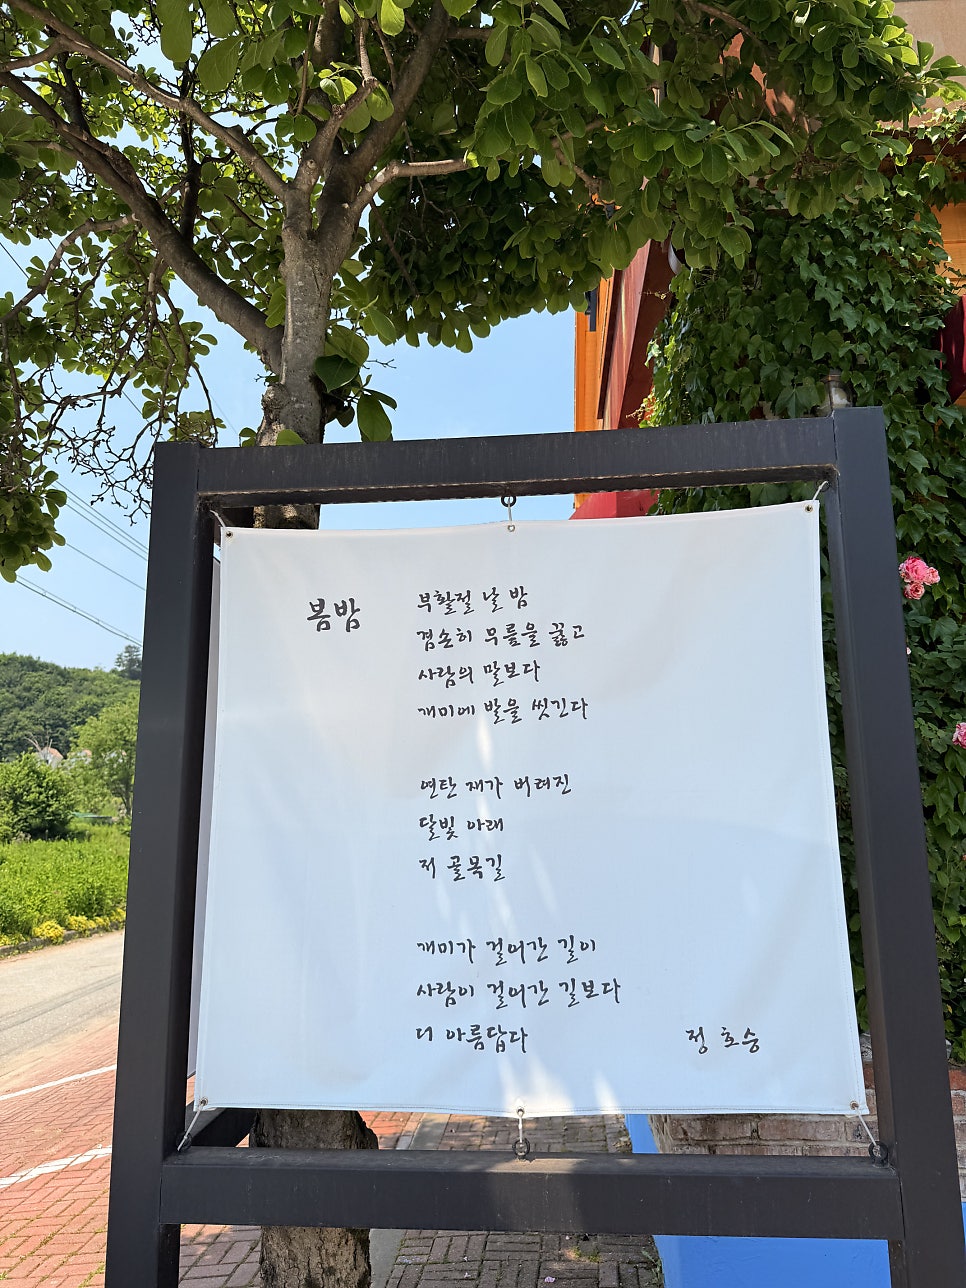 봄밤
부활절 날 밤
겸손히 무릎을 꿇고
사람의 말보다
개미에 발을 씻긴다
연탄 재가 버려진
달빛 아래
저 골목길
개미가 걸어간 길이
사람이 걸어간 길보다
더 아름답다
정호승